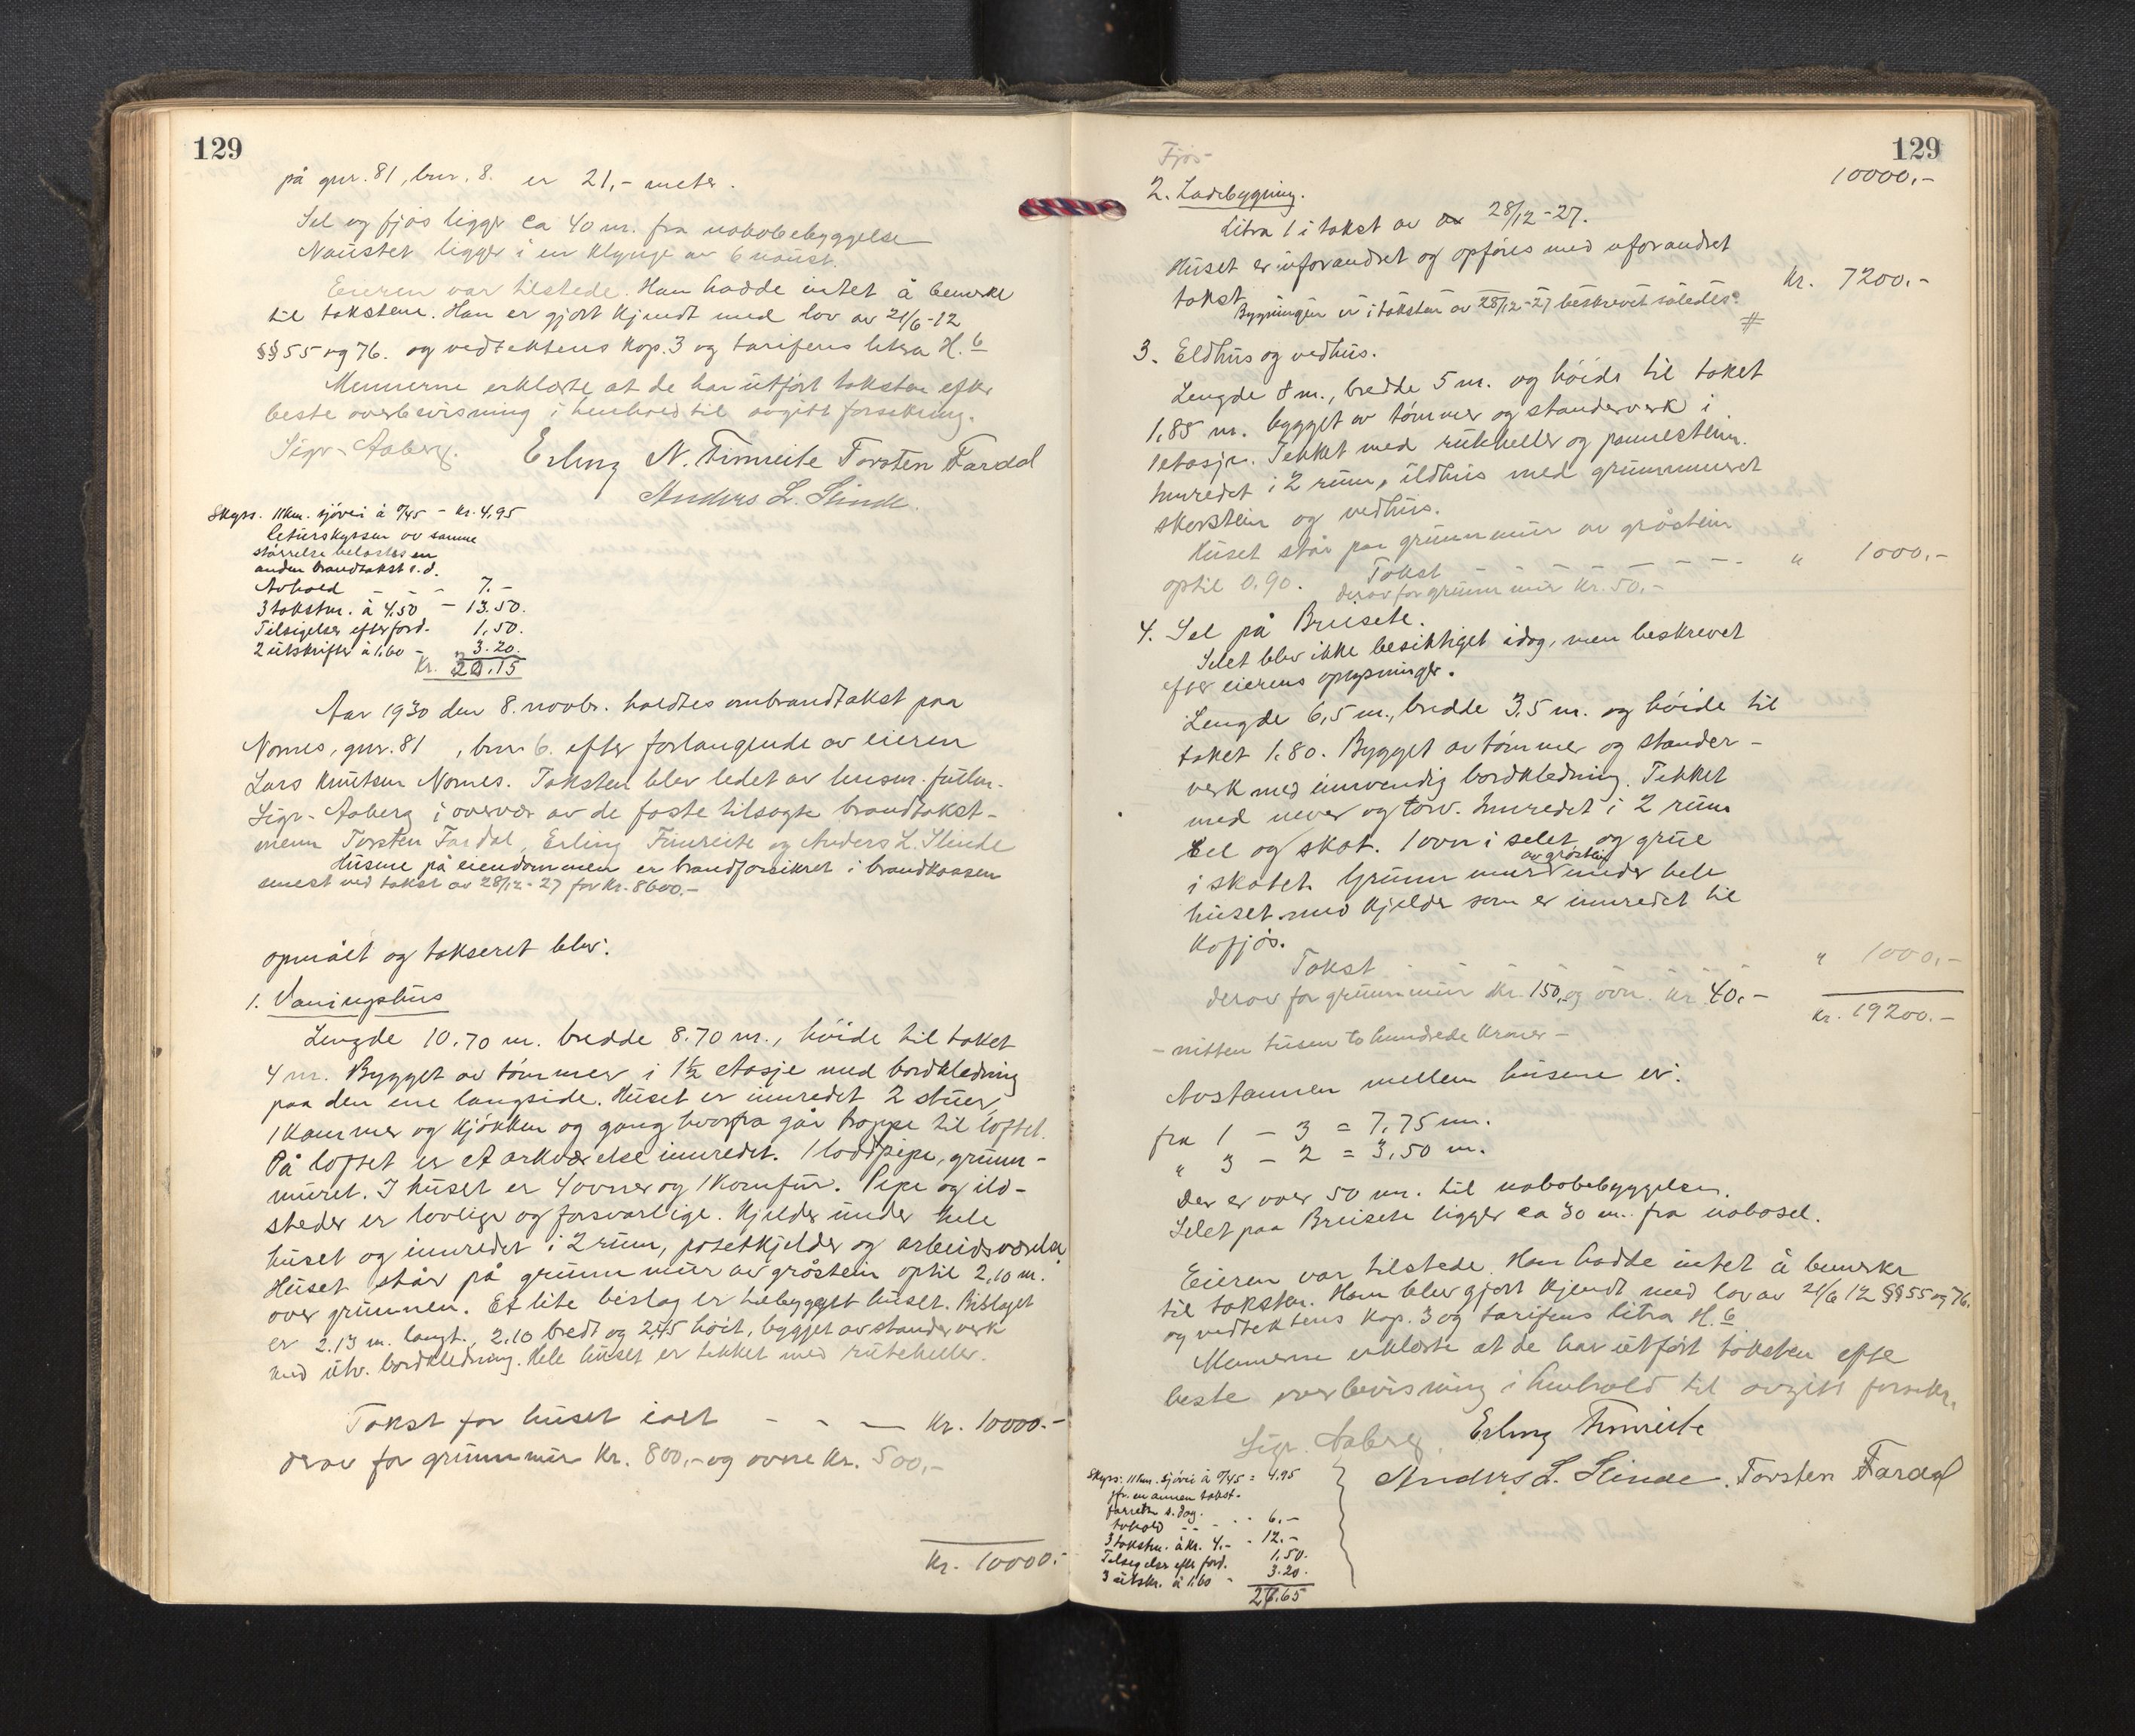 129
på gnr. 81, bnr. 8. er 21,- meter.
Sel og fjøs ligger ca 40 m. fra nabobebyggelse
Naustet ligger i en klynge av 6 naust.
Eieren var tilstede. Han hadde intet å bemerke
til takstene. Han er gjort kjendt med lov av 21/6-12
§§ 55 og 76. og vedtektens kap. 3 og tarifens litra H. 6
Mennerne erklærte at de har utført taksten efter
beste overbevisning i henhold til avgitt forsikring.
Sigr. Aaberg. Erling N. Fimreite Torsten Fardal
Anders L. Slinde.
Skyss. 11 km. sjøvei à 0/45 - kr. 4.95
returskyssen av samme
størrelse belastes en
anden brandtakst s.d.
Avhold - - - 7.-
3 takstm. à 4.50 - 13.50.
Tilsigelser efter ford. 1,50.
2 utskrifter à 1.60 - " 3.20.
kr. 20.15
Aar 1930 den 8. novbr. holdtes ombrandtakst paa
Nornes, gnr. 81, bnr. 6. efter forlangende av eieren
Lars Knutsen Nornes. Taksten blev ledet av lensm. fullm.
Sigr. Aaberg i overvær av de faste tilsagte brandtakst-
menn Torsten Fardal, Erling Fimreite og Anders L. Slinde
Husene på eiendommen er brandforsikret i brandkassen
senest ved takst av 28/12-27 for kr. 8600.-
opmålt og taksert blev:
1. Vaaningshus
Lengde 10.70 m. bredde 8.70 m., høide til taket
4 m. Bygget av tømmer i 1½ etasje med bordkledning
paa den ene langside. Huset er innredet 2 stuer,
1 kammer og kjøkken og gang hvorfra går trappe til loftet.
På loftet er et arkværelse innredet. 1 loddpipe, grunn-
muret. I huset er 4 ovner og 1 komfur. Pipe og ild-
steder er lovlige og forsvarlige. Kjelder under hele
huset og innredet i 2 rum, potetkjelder og arbeidsværelse
Huset står på grunnmur av gråstein optil 2,10 m.
over grunnen. Et lite bislag er tilbygget huset. Bislaget
er 2.13 m. langt., 2.10 bredt og 2,45 høit, bygget av standerverk
med utv. bordkledning. Hele huset er tekket med rutheller.
Takst for huset ialt - - - kr. 10000.-
derav for grunnmur kr. 800,- og ovne kr. 500,-
kr. 10000.-
129
10000.-
Fjøs-
2. Ladebygning.
Litra 1 i takst av 28/12-27.
Huset er uforandret og opføres med uforandret
takst kr. 7200.-
Bygningen er i taksten av 28/12-27 beskrevet således: #
3. Eldhus og vedhus.
Lengde 8 m., bredde 5 m. og høide til taket
1,85 m. bygget av tømmer og standerverk i
1 etasje. Tekket med rutheller og pannestein.
Innredet i 2 rum, ildhus med grunnmuret
skorstein og vedhus.
Huset står paa grunnmur av gråstein
optil 0.90. Takst - - - - - - - " 1000,-
derav for grunnmur kr. 50,-
4. Sel på Breisete.
Selet blev ikke besiktiget idag, men beskrevet
efter eierens oplysninger.
Lengde 6,5 m., bredde 3,5 m. og høide til
taket 1.80. Bygget av tømmer og stander-
verk med innvendig bordkledning. Tekket
med never og torv. Innredet i 2 rum
sel og skot. 1 ovn i selet og grue
i skotet. Grunnmur av gråstein under hele
huset med kjelder som er innredet til
kofjøs.
Takst - - - - - - " 1000,-
derav for grunnmur kr. 150, og ovn kr. 40.-
kr. 19200.-
- nitten tusen to hundrede kroner -
Avstannen mellem husene er:
fra 1 - 3 = 7,75 m.
" 3 - 2 = 3,50 m.
Der er over 50 m. til nabobebyggelsen.
Selet paa Breisete ligger ca 30 m. fra nabosel.
Eieren var tilstede. Han hadde intet å bemerke
til taksten. Ham blev gjort kjendt med lov av 21/6 12 §§ 55 og 76.
og vedtektens kap. 3 og tarifens litra H. 6
Mennerne erklærte at de har utført taksten efter
beste overbevisning i henhold til avgitt forsikr.
Sigr. Aaberg. Erling Fimreite
Anders L. Slinde. Torsten Fardal
Skyss: 11 km. sjøvei à 0/45 = 4.95
jfr. en annen takst.
forrette s. dag.
Avhold - - - - 6.-
3 takstm. à kr. 4.- - 12.-
Tilsigelse efter ford. 1,50.
3 utskr. à 1.60 - 3.20.
27.65